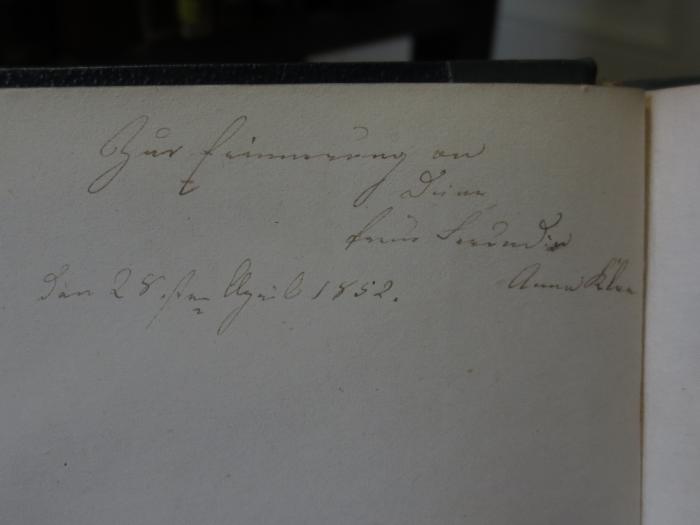 Zur Erinnerung an
Deine
treue Freundin
Anna Klee
den 28sten April 1852.